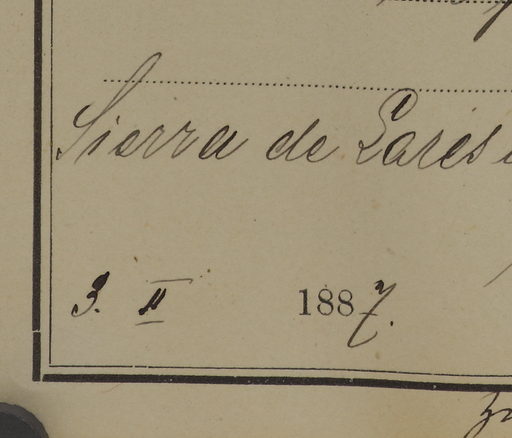 Sierra de Lares
3. II 1887.